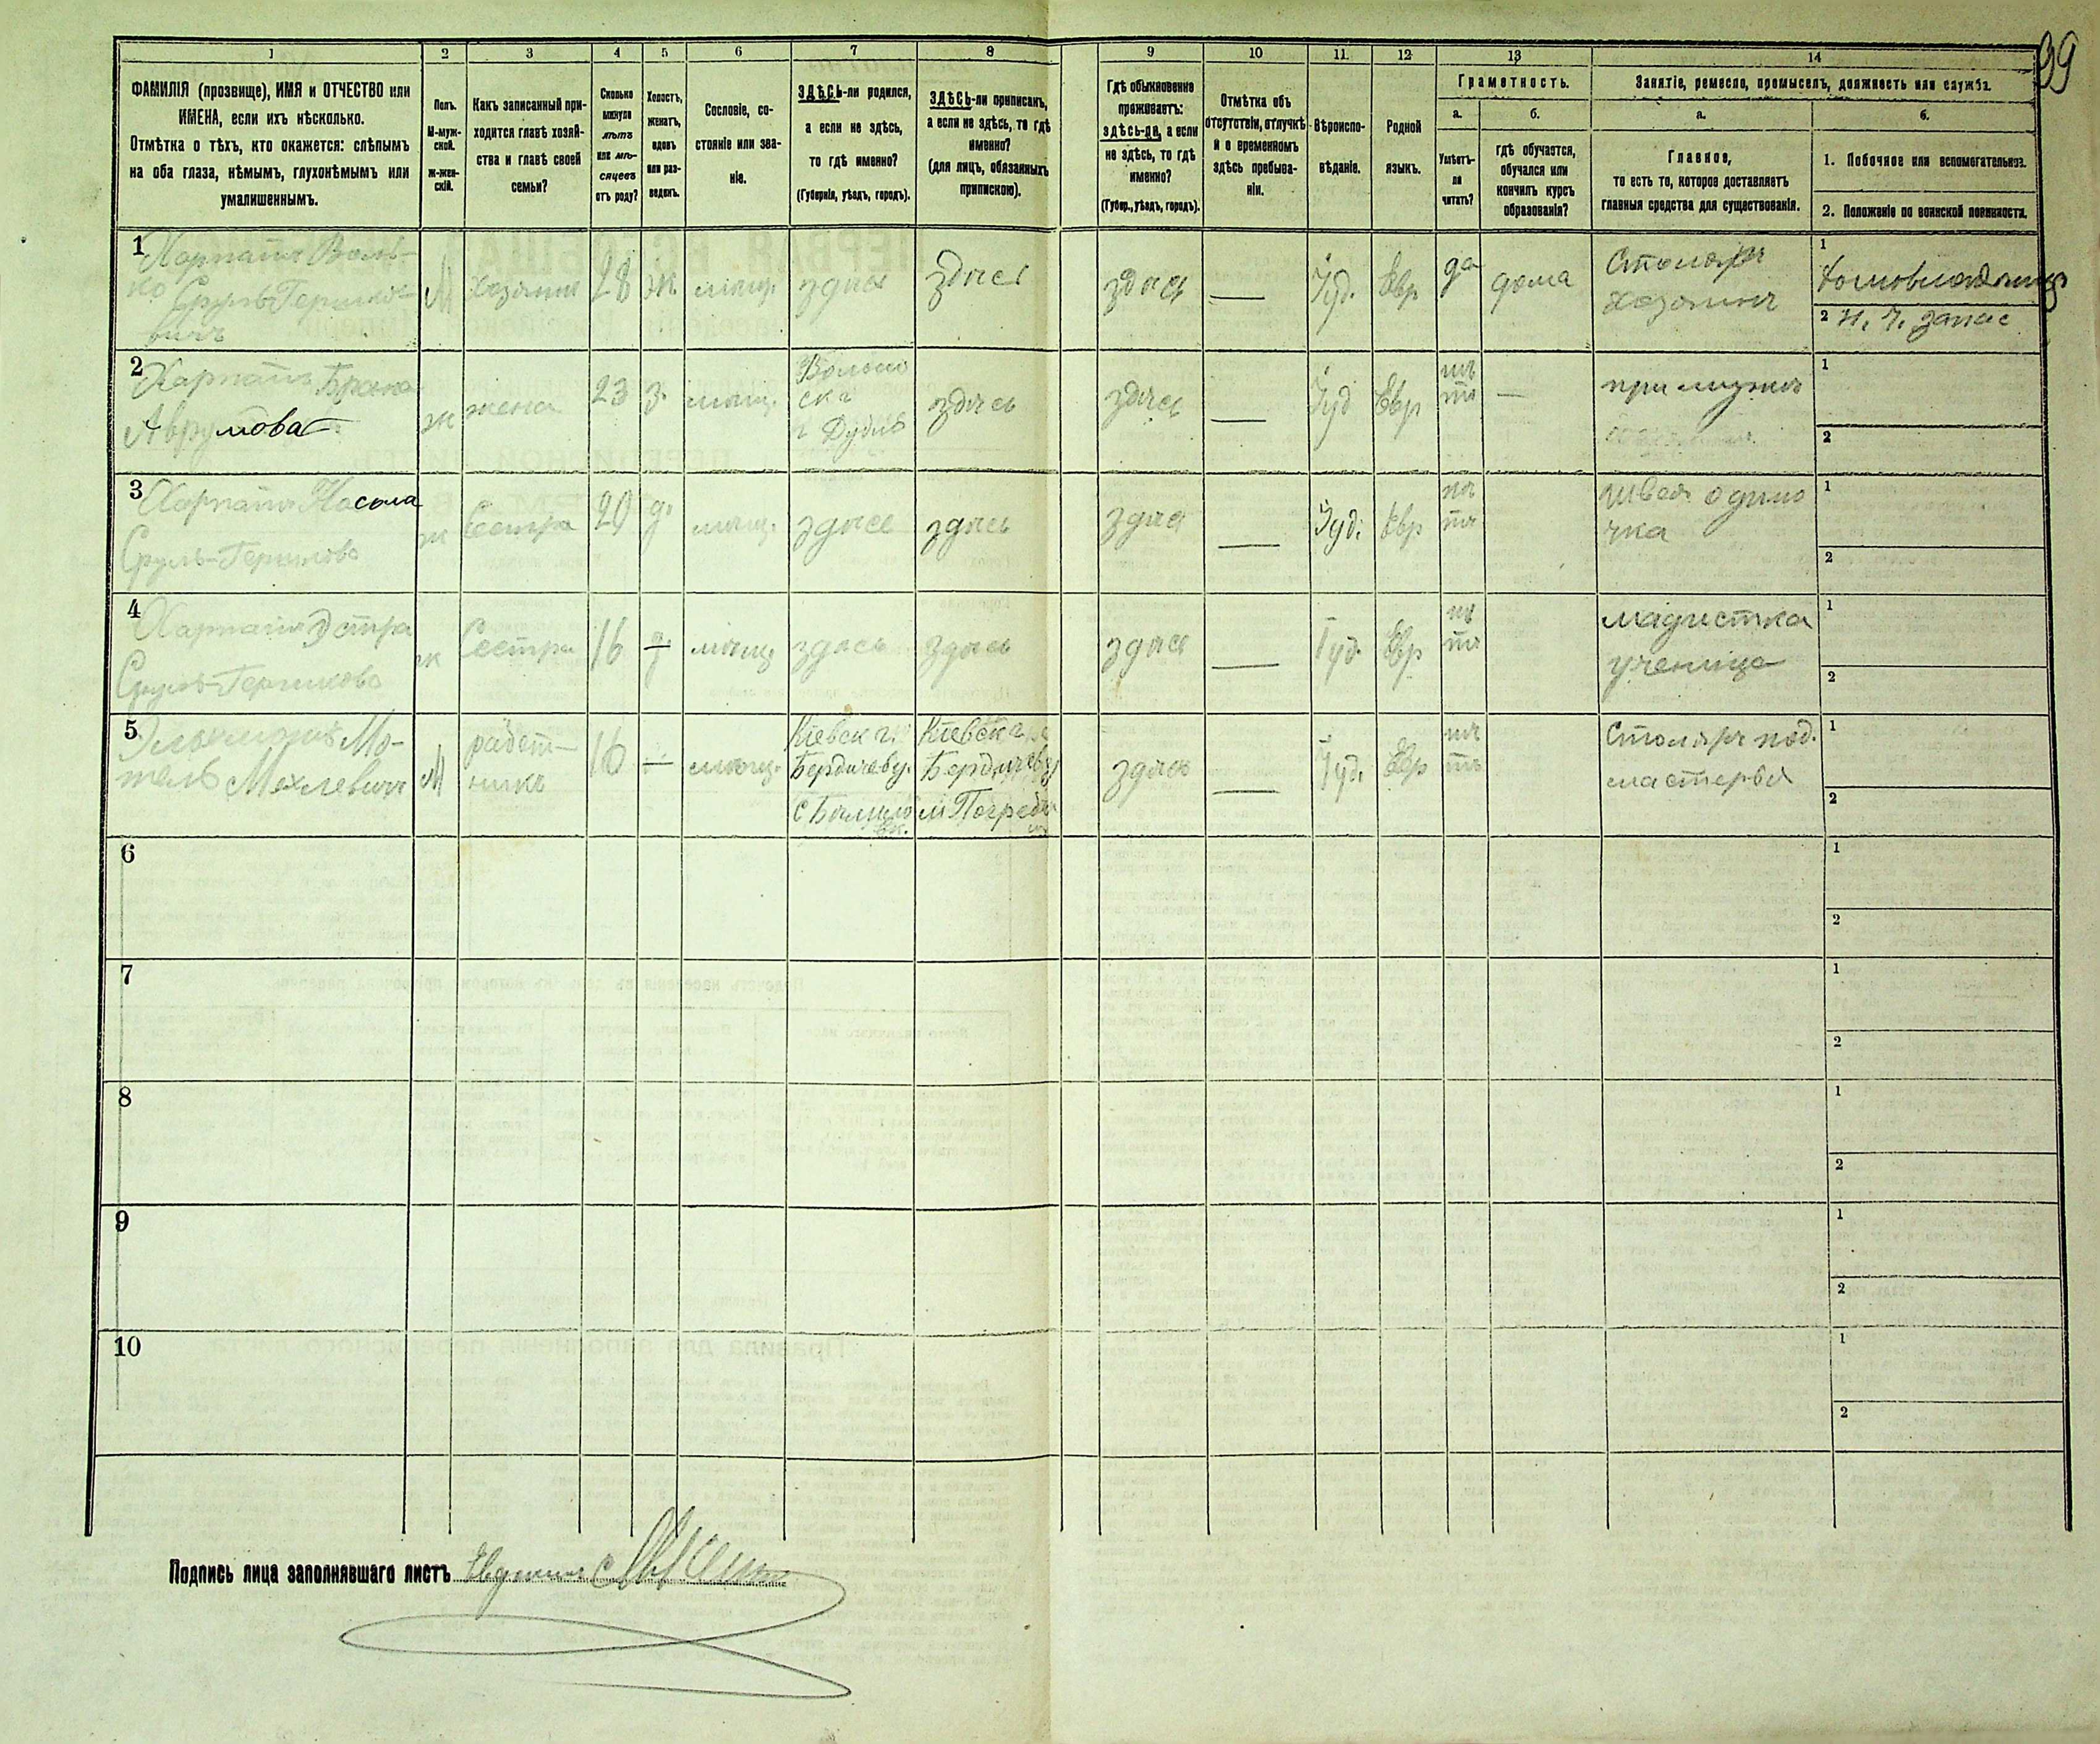 99
1 2 3 4 5 6 7 8 9 10 11. 12 13 14
ФАМИЛІЯ (прозвище), ИМЯ и ОТЧЕСТВО или
ИМЕНА, если ихъ нѣсколько.
Отмѣтка о тѣхъ, кто окажется: слѣпымъ
на оба глаза, нѣмымъ, глухонѣмымъ или
умалишеннымъ.
Полъ.
М-муж-
ской.
ж-жен-
скій.
Какъ записанный при-
ходится главѣ хозяй-
ства и главѣ своей
семьи?
Сколько
минуло
лѣтъ
или мѣ-
сяцевъ
отъ роду?
Холостъ,
женатъ,
вдовъ
или раз-
веденъ.
Сословіе, со-
стояніе или зва-
ніе.
ЗДѢСЬ-ли родился,
а если не здѣсь,
то гдѣ именно?
(Губернія, уѣздъ, городъ).
ЗДѢСЬ-ли приписанъ,
а если не здѣсь, то гдѣ
именно?
(для лицъ, обязанныхъ
припискою).
Гдѣ обыкновенно
проживаетъ:
здѣсь-ли, а если
не здѣсь, то гдѣ
именно?
(Губер., уѣздъ, городъ).
Отмѣтка объ
отсутствіи, отлучкѣ
и о временномъ
здѣсь пребыва-
ніи.
Вѣроиспо-
вѣданіе.
Родной
языкъ.
Грамотность.
а.
Умѣетъ-
ли
читать?
б.
гдѣ обучается,
обучался или
кончилъ курсъ
образованія?
Занятіе, ремесло, промыселъ, должность или служба.
а.
Главное,
то есть то, которое доставляетъ
главныя средства для существованія.
б.
1. Побочное или вспомогательное.
2. Положеніе по воинской повинности.
1
Вель-
ко Сруль-Гершко-
вичъ
М
Хозяинъ
28
ж.
мѣщ.
здѣсь
здѣсь
здѣсь
—
Іуд.
Евр
да
дома
Столяръ
хозяинъ
1
домовладѣлецъ
2 н. ч. запас
2
Аврумова
ж
жена
23
з.
мѣщ.
г Дубно
здѣсь
здѣсь
—
Іуд
Евр
нѣ
тъ
—
при мужѣ
1
2
3
Сруль-Гершкова
ж
Сестра
29
д.
мѣщ.
здѣсь
здѣсь
здѣсь
—
Іуд.
Евр
нѣ
тъ
швея одино
чка
1
2
4
Сруль-Гершкова
ж
Сестра
16
д.
мѣщ.
здѣсь
здѣсь
здѣсь
—
Іуд.
Евр
нѣ
тъ
мадистка
ученица
1
2
5
Мо-
тель Мехлевичъ
М
работ-
никъ
16
—
мѣщ.
Кіевск г.
Бердичев у.
Кіевск г.
Бердичев у
м Погребищ
здѣсь
—
Іуд.
Евр
нѣ
тъ
Столяръ под.
мастерья
1
2
6
1
2
7
1
2
8
1
2
9
1
2
10
1
2
Подпись лица заполнявшаго листъ